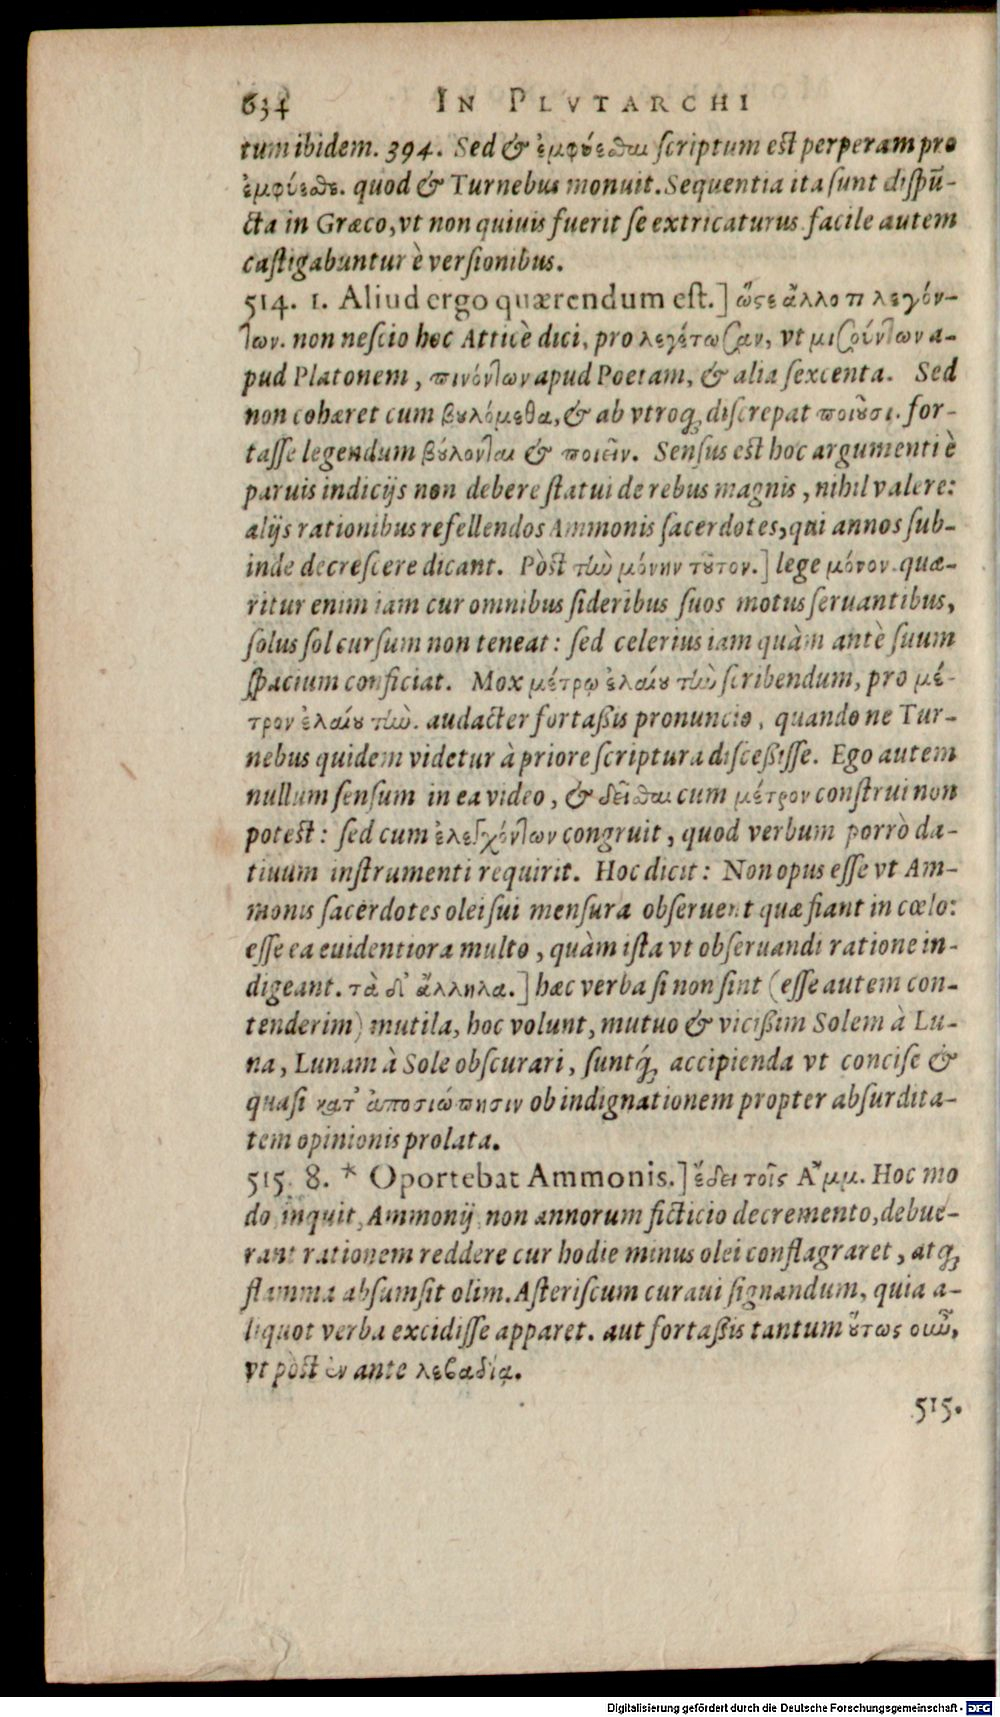 634 IN PLVTARCHI
tum ibidem. 394. Sed & ἐμφύεσθαι scriptum est perperam pro
ἐμφύεσθε. quod & Turnebus monuit. Sequentia ita sunt dispũ-
cta in Græco, vt non quiuis fuerit se extricaturus facile autem
castigabuntur è versionibus.
514. 1. Aliud ergo quærendum est.] ὥςε ἄλλο τι λεγόν-
των. non nescio hoc Atticè dici, pro λεγέτωσαν, vt μισούντων a-
pud Platonem, πινόντων apud Poetam, & alia sexcenta. Sed
non cohæret cum βȣλόμεθα, & ab vtroq; discrepat ποιȣ͂σι. for-
tasse legendum βȣ́λονται & ποιεῖν. Sensus est hoc argumenti è
paruis indicijs non debere statui de rebus magnis, nihil valere:
alijs rationibus refellendos Ammonis sacerdotes, qui annos sub-
inde decrescere dicant. Pòst τὼ μόνην τȣ͂τον.] lege μόνον. quæ-
ritur enim iam cur omnibus sideribus suos motus seruantibus,
solus sol cursum non teneat: sed celerius iam quàm antè suum
spacium conficiat. Mox μέτρῳ ἐλαίȣ τὼ scribendum, pro μέ-
τρον ἐλαίȣ τὼ. audacter fortaßis pronuncio, quando ne Tur-
nebus quidem videtur à priore scriptura disceßisse. Ego autem
nullum sensum in ea video, & δεῖσθαι cum μέτρον construi non
potest: sed cum ἐλεγχόντων congruit, quod verbum porrò da-
tiuum instrumenti requirit. Hoc dicit: Non opus esse vt Am-
monis sacerdotes olei sui mensura obseruent quæ fiant in cœlo:
esse ea euidentiora multo, quàm ista vt obseruandi ratione in-
digeant. τὰ δι' ἄλληλα.] hæc verba si non sint (esse autem con-
tenderim) mutila, hoc volunt, mutuo & vicißim Solem à Lu-
na, Lunam à Sole obscurari, suntq́; accipienda vt concise &
quasi κατ' ἀποσιώπησιν ob indignationem propter absurdita-
tem opinionis prolata.
515. 8. * Oportebat Ammonis.] ἔδει τοῖς Ἄμμ. Hoc mo
do, inquit, Ammonij non annorum ficticio decremento, debue-
rant rationem reddere cur hodie minus olei conflagraret, atq;
flamma absumsit olim. Asteriscum curaui signandum, quia a-
liquot verba excidisse apparet. aut fortaßis tantum ȣ̔́τως οιῶ,
vt pòst ἐν ante λεβαδίᾳ.
515.
Digitalisierung gefördert durch die Deutsche Forschungsgemeinschaft - DFG